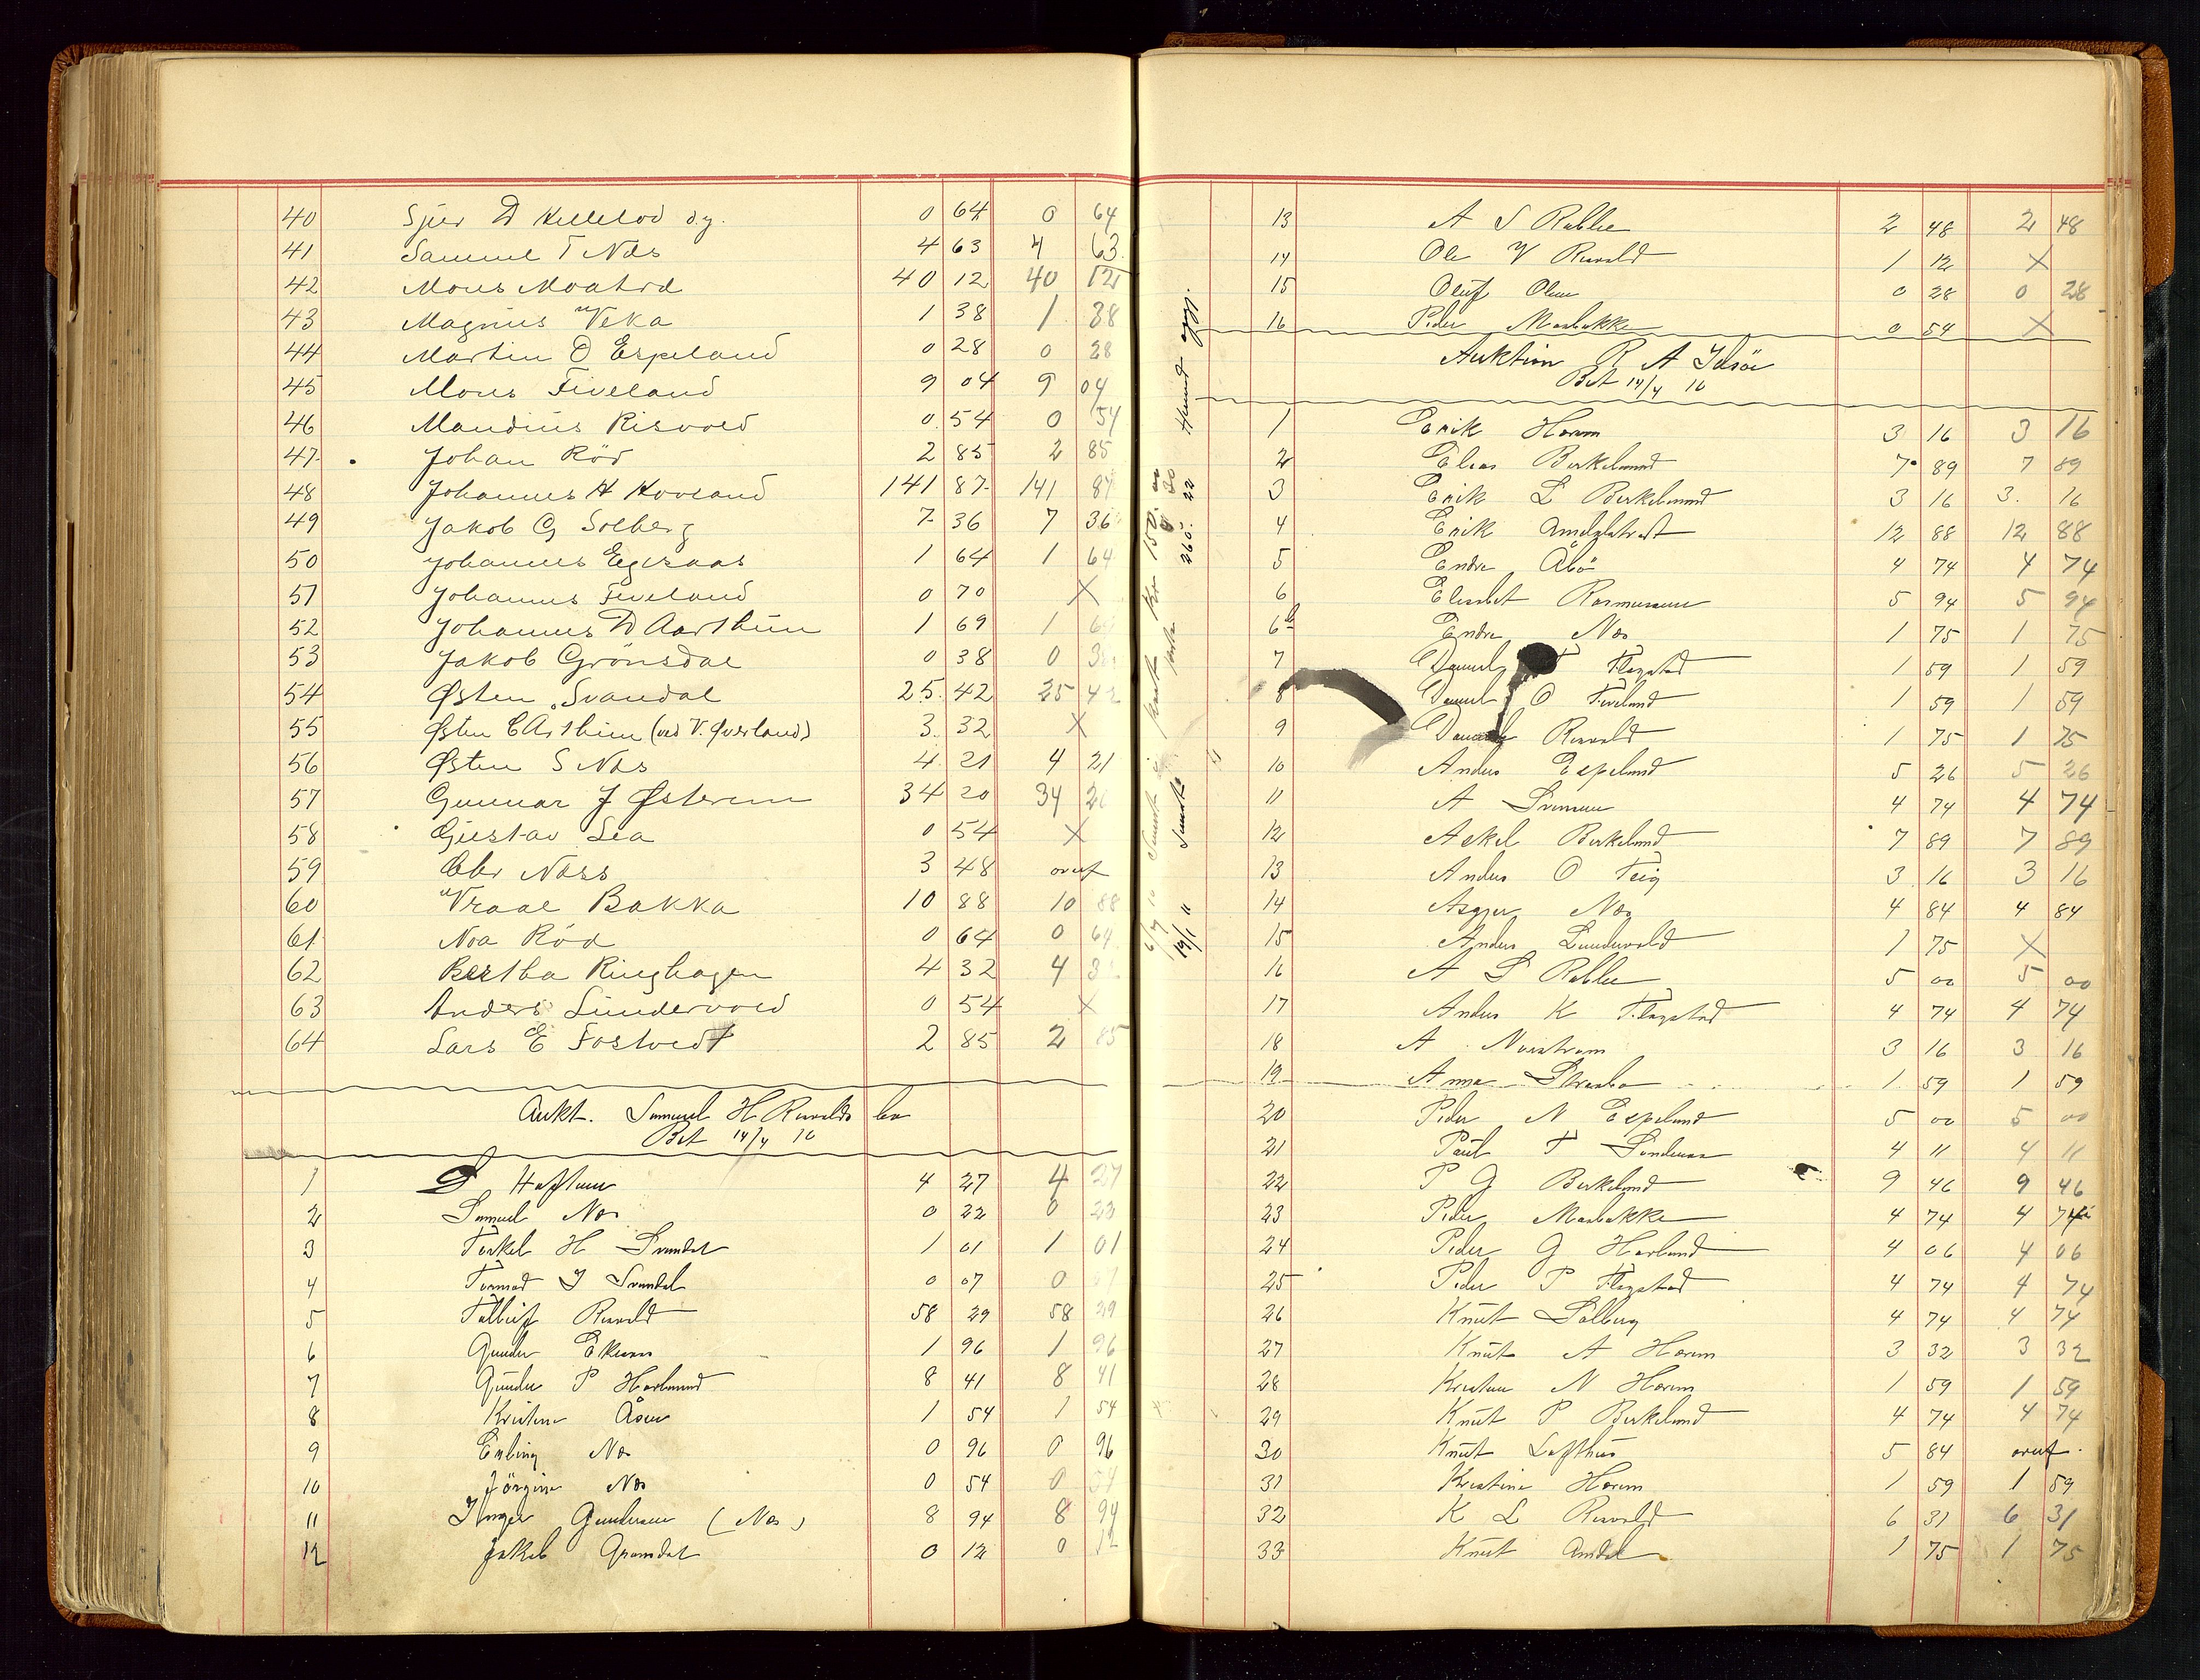 40 Sjur D Hellelod d.y. 0 64 0 64
41 Samuel T Næs 4 63 4 63
42 Mons Moatræ 40 12 40 12
43 Magnus Veka 1 38 1 38
44 Martin O Espeland 0 28 0 28
45 Mons Fiveland 9 04 9 04
46 Mandius Risvold 0 54 0 54
47 Johan Röd 2 85 2 85
48 Johannes H Hovland 141 87 141 87
49 Jakob G Solberg 7 36 7 36
50 Johannes Egesaas 1 64 1 64
51 Johannes Fiveland 0 70 X
52 Johannes D Aarthun 1 69 1 69
53 Jakob Grönsdal 0 38 0 38
54 Østen Svandal 25 42 25 42
55 Østen E Arthun (ved V. Øverland) 3 32 X
56 Østen S Næs 4 21 4 21
57 Gunnar J Østerem 34 20 34 20
58 Gustav Lea 0 54 X
59 Næss 3 48 overf
60 Vraal Bakka 10 88 10 88
61 Noa Röd 0 64 0 64
62 Bertha Ringhagen 4 32 4 32
63 Anders Lundervold 0 54 X
64 Lars E Fostvedt 2 85 2 85
Aukt. Samuel H Risvolds bo
Bet 14/4 10
1 Hafturn 4 27 4 27
2 Samuel Næs 0 22 0 22
3 Torkel H Svandal 1 01 1 01
4 Tormod J Svandal 0 07 0 07
5 Tolleif Risvold 58 29 58 29
6 Gunder Ekrene 1 96 1 96
7 Gunder P Havlund 8 41 8 41
8 Kristine Åsen 1 54 1 54
9 Erling Næs 0 96 0 96
10 Jörgine Næs 0 54 0 54
11 Inger Gundersen (Næs) 8 94 8 94
12 Jakob Gramdal 0 12 0 12
13 A S Rabbe 2 48 2 48
14 Ole V Risvold 1 12 X
15 Oluf Olsen 0 28 0 28
16 Peder Mosbakke 0 54 X
Auktion R A Idsöe
Bet 14/4 10
1 Erik Horem 3 16 3 16
2 Elias Birkelund 7 89 7 89
3 Erik L Birkelund 3 16 3 16
4 Erik 12 88 12 88
5 Endre Åbö 4 74 4 74
6 Elisabet Rasmussen 5 94 5 94
6b Endre Næs 1 75 1 75
7 Daniel T Flogstad 1 59 1 59
8 Daniel O Fiveland 1 59 1 59
9 Daniel Risvold 1 75 1 75
10 Anders Espeland 5 26 5 26
11 A Svensen 4 74 4 74
12 Askel Birkelund 7 89 7 89
13 Anders O Teig 3 16 3 16
14 Asgjer Næs 4 84 4 84
15 Anders Lundervold 1 75 X
16 A S Rabbe 5 00 5 00
17 Anders K Flogstad 4 74 4 74
18 A Norstrøm 3 16 3 16
19 Anna 1 59 1 59
20 Peder N Espeland 5 00 5 00
21 Paul T Sandenaa 4 11 4 11
22 P G Birkeland 9 46 9 46
23 Peder Mosbakke 4 74 4 74
24 Peder G Havlund 4 06 4 06
25 Peder P Flogstad 4 74 4 74
26 Knut Solberg 4 74 4 74
27 Knut A Horem 3 32 3 32
28 Kristen N Horem 1 59 1 59
29 Knut P Birkelund 4 74 4 74
30 Knut Lofthus 5 84 overf.
31 Kristine Horem 1 59 1 59
32 K L Risvold 6 31 6 31
33 Knut Amdal 1 75 1 75